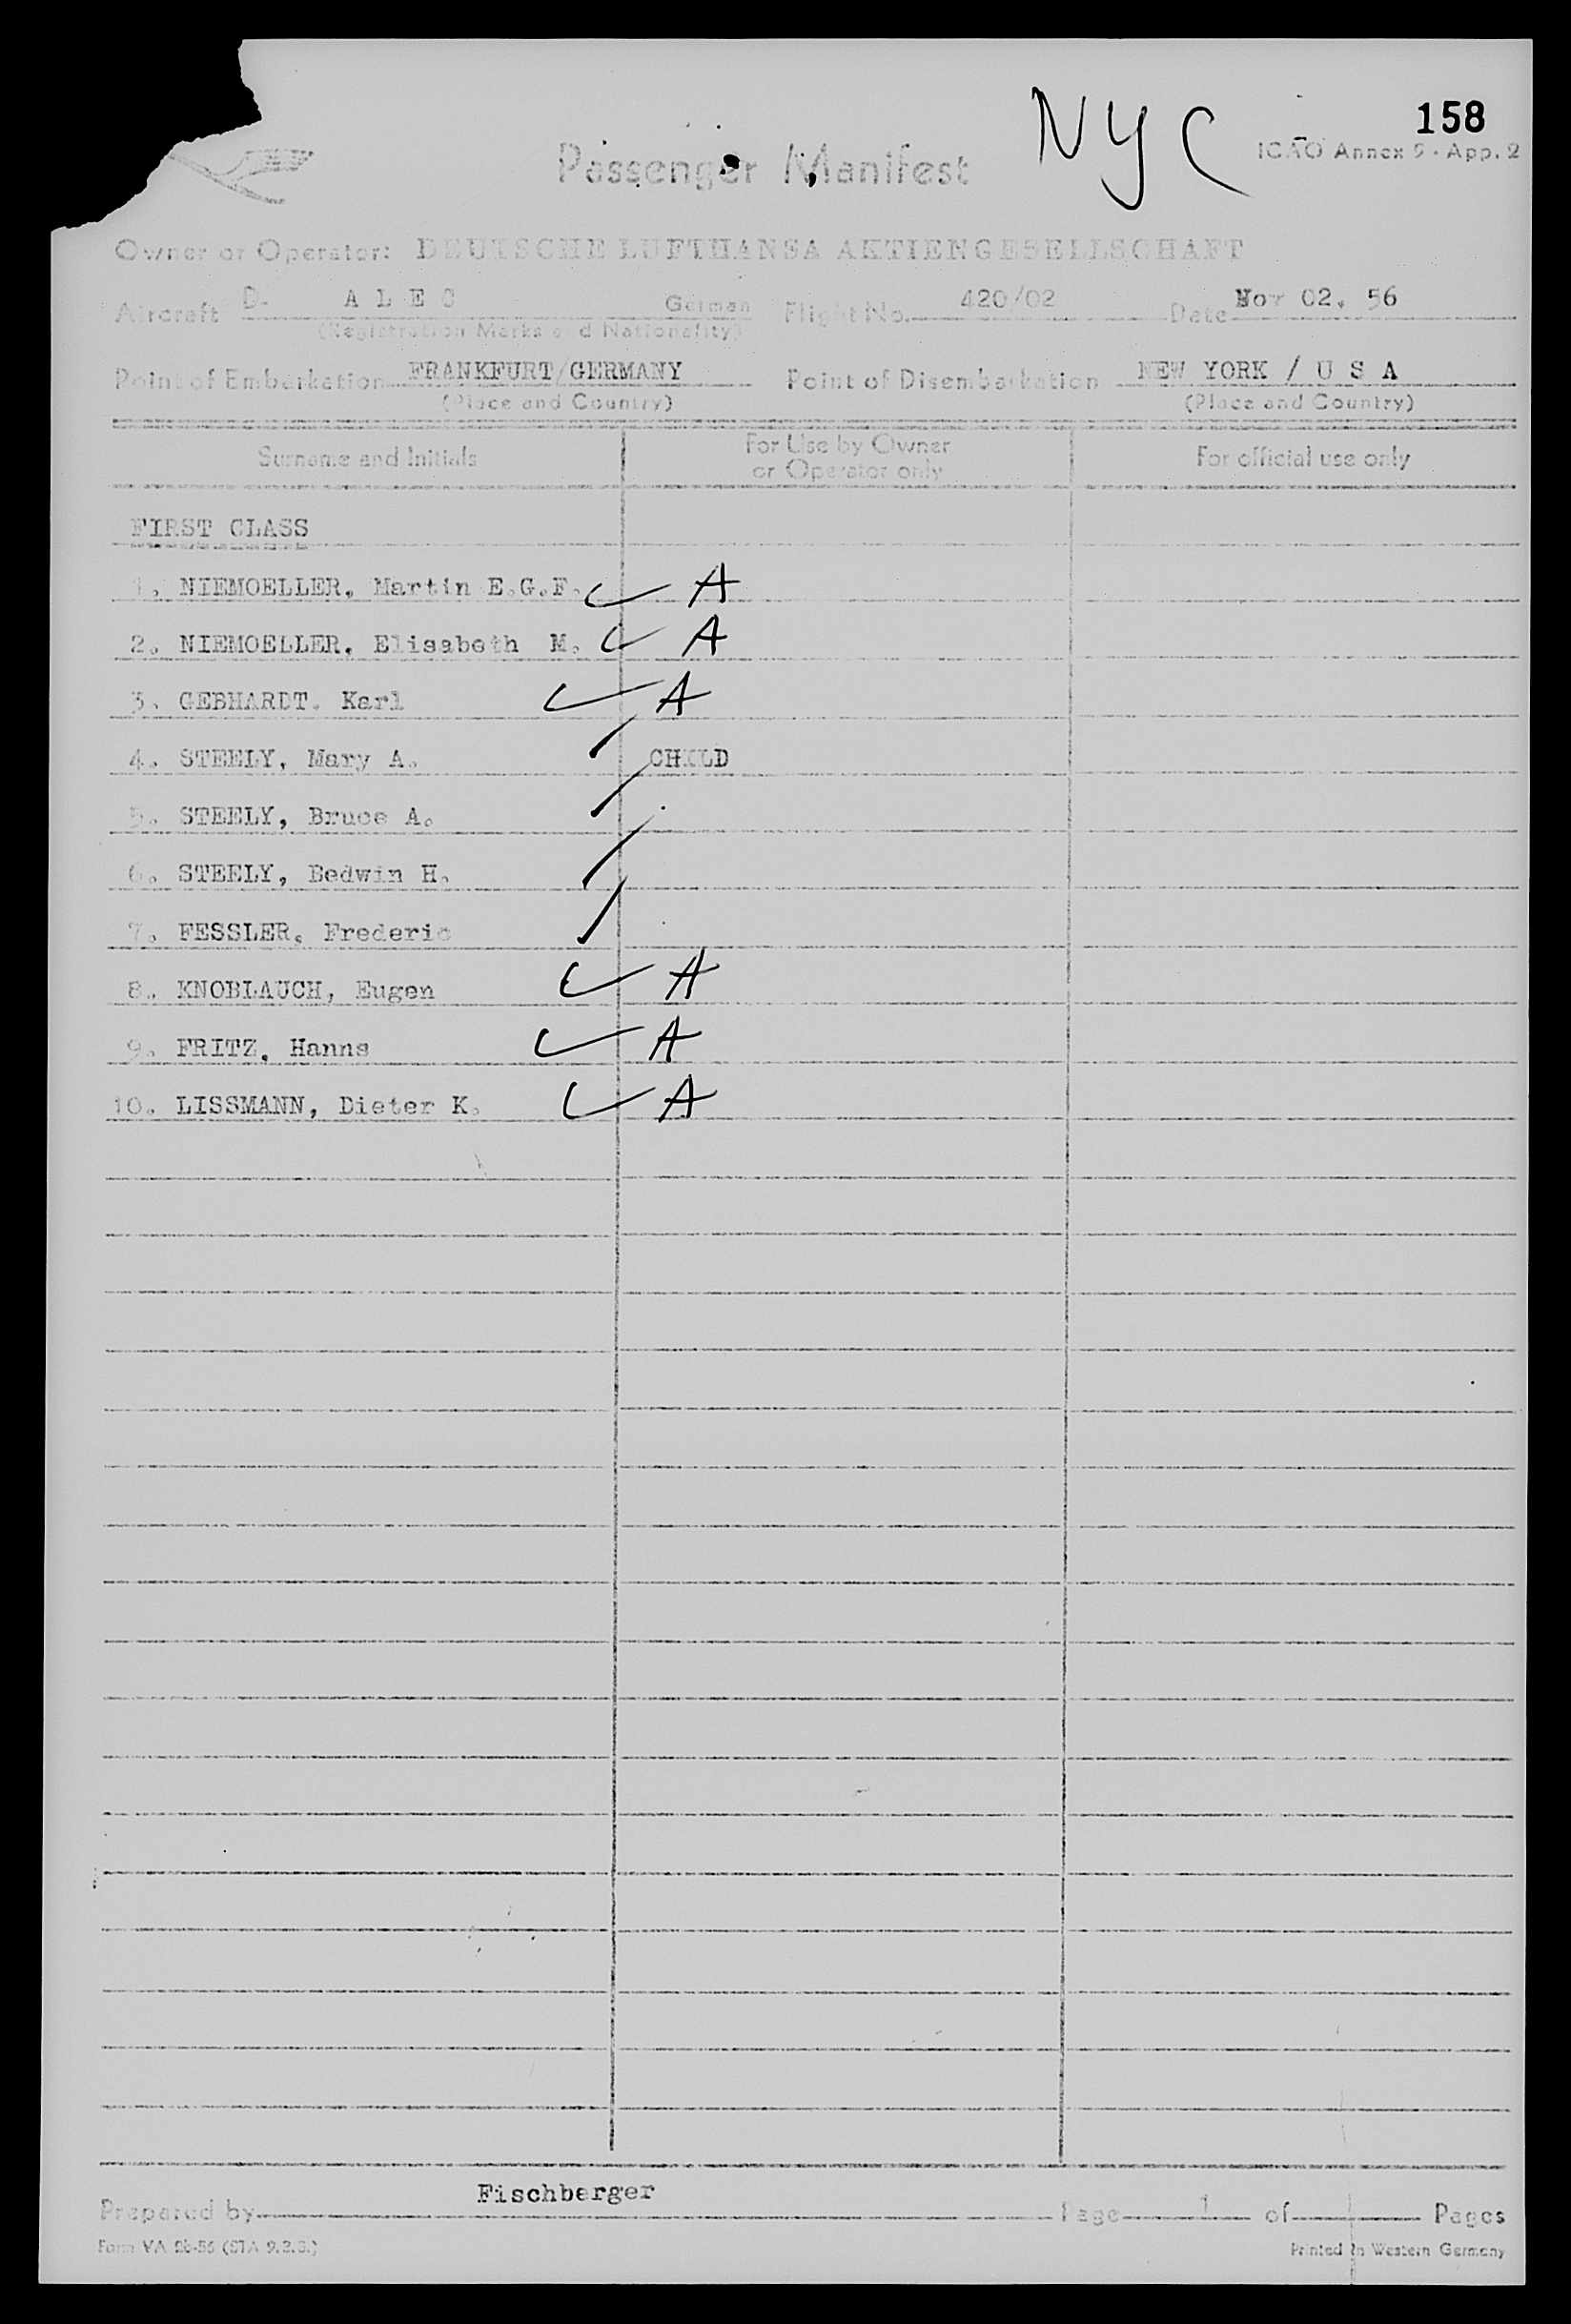 NYC
158
ICAO Annex 9 - App. 2
Passenger Manifest
Owner or Operator: DEUTSCHE LUFTHANSA AKTIENGESELLSCHAFT
Aircraft D. A L E German Flight No. 420/02 Date Nov 02. 56
(Registration Marks and Nationality)
Point of Embarkation FRANKFURT/GERMANY Point of Disembarkation NEW YORK / U S A
(Place and Country) (Place and Country)
Surname and Initials For Use by Owner or Operator only For official use only
FIRST CLASS
1. NIEMOELLER, Martin E.G.F. ✓ A
2. NIEMOELLER, Elisabeth M. ✓ A
3. GEBHARDT, Karl ✓ A
4. STEELY, Mary A. / CHILD
5. STEELY, Bruce A. /
6. STEELY, Bedwin H. /
7. FESSLER, Frederic /
8. KNOBLAUCH, Eugen ✓ A
9. FRITZ, Hanns ✓ A
10. LISSMANN, Dieter K. ✓ A
Prepared by Fischberger Page 1 of 1 Pages
Form VA Printed in Western Germany